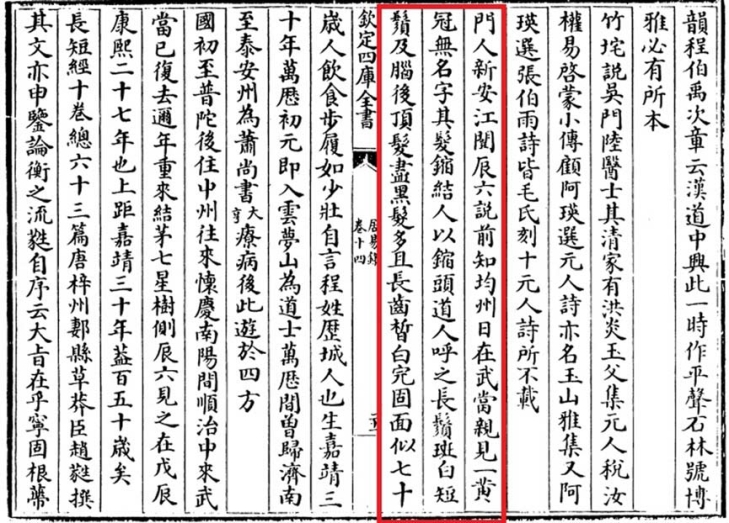 韻程伯禹次章云漢道中興此一時作平聲石林號博
雅必有所本
竹垞説吳門陸醫士其清家有洪炎玉父集元人稅汝
權易啓蒙小傳顧阿瑛選元人詩亦名玉山雅集又阿
瑛選張伯雨詩皆毛氏刻十元人詩所不載
門人新安江闓辰六説前知均州日在武當親見一黃
冠無名字其髮綰結人以綰頭道人呼之長鬚斑白短
鬚及腦後頂髮盡黑髮多且長齒皙白完固面似七十
欽定四庫全書
居易録
卷十四
歳人飲食步履如少壯自言程姓歴城人也生嘉靖三
十年萬歴初元即入雲夢山為道士萬歴間曾歸濟南
至泰安州為蕭尚書大亨療病後此遊於四方
國初至普陀後住中州往來懷慶南陽間順治中來武
當已復去邇年重來結茅七星樹側辰六見之在戊辰
康熙二十七年也上距嘉靖三十年葢百五十歳矣
長短經十卷總六十三篇唐梓州郪縣草莽臣趙蕤撰
其文亦申鑒論衡之流蕤自序云大旨在乎寧固根蔕